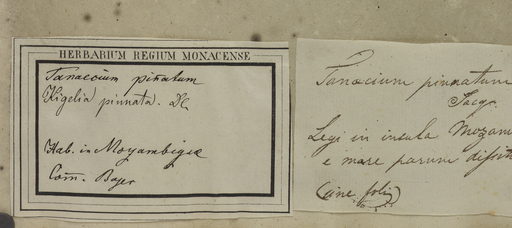 HERBARIUM REGIUM MONACENSE
Tanaecium pinatum
Kigelia pinnata. DC
Hab. in Mozambique
Com. Bojer
Tanaecium pinnatum
Jacq.
Legi in insula Mozam
e mare parum dissit
(sine foliis)